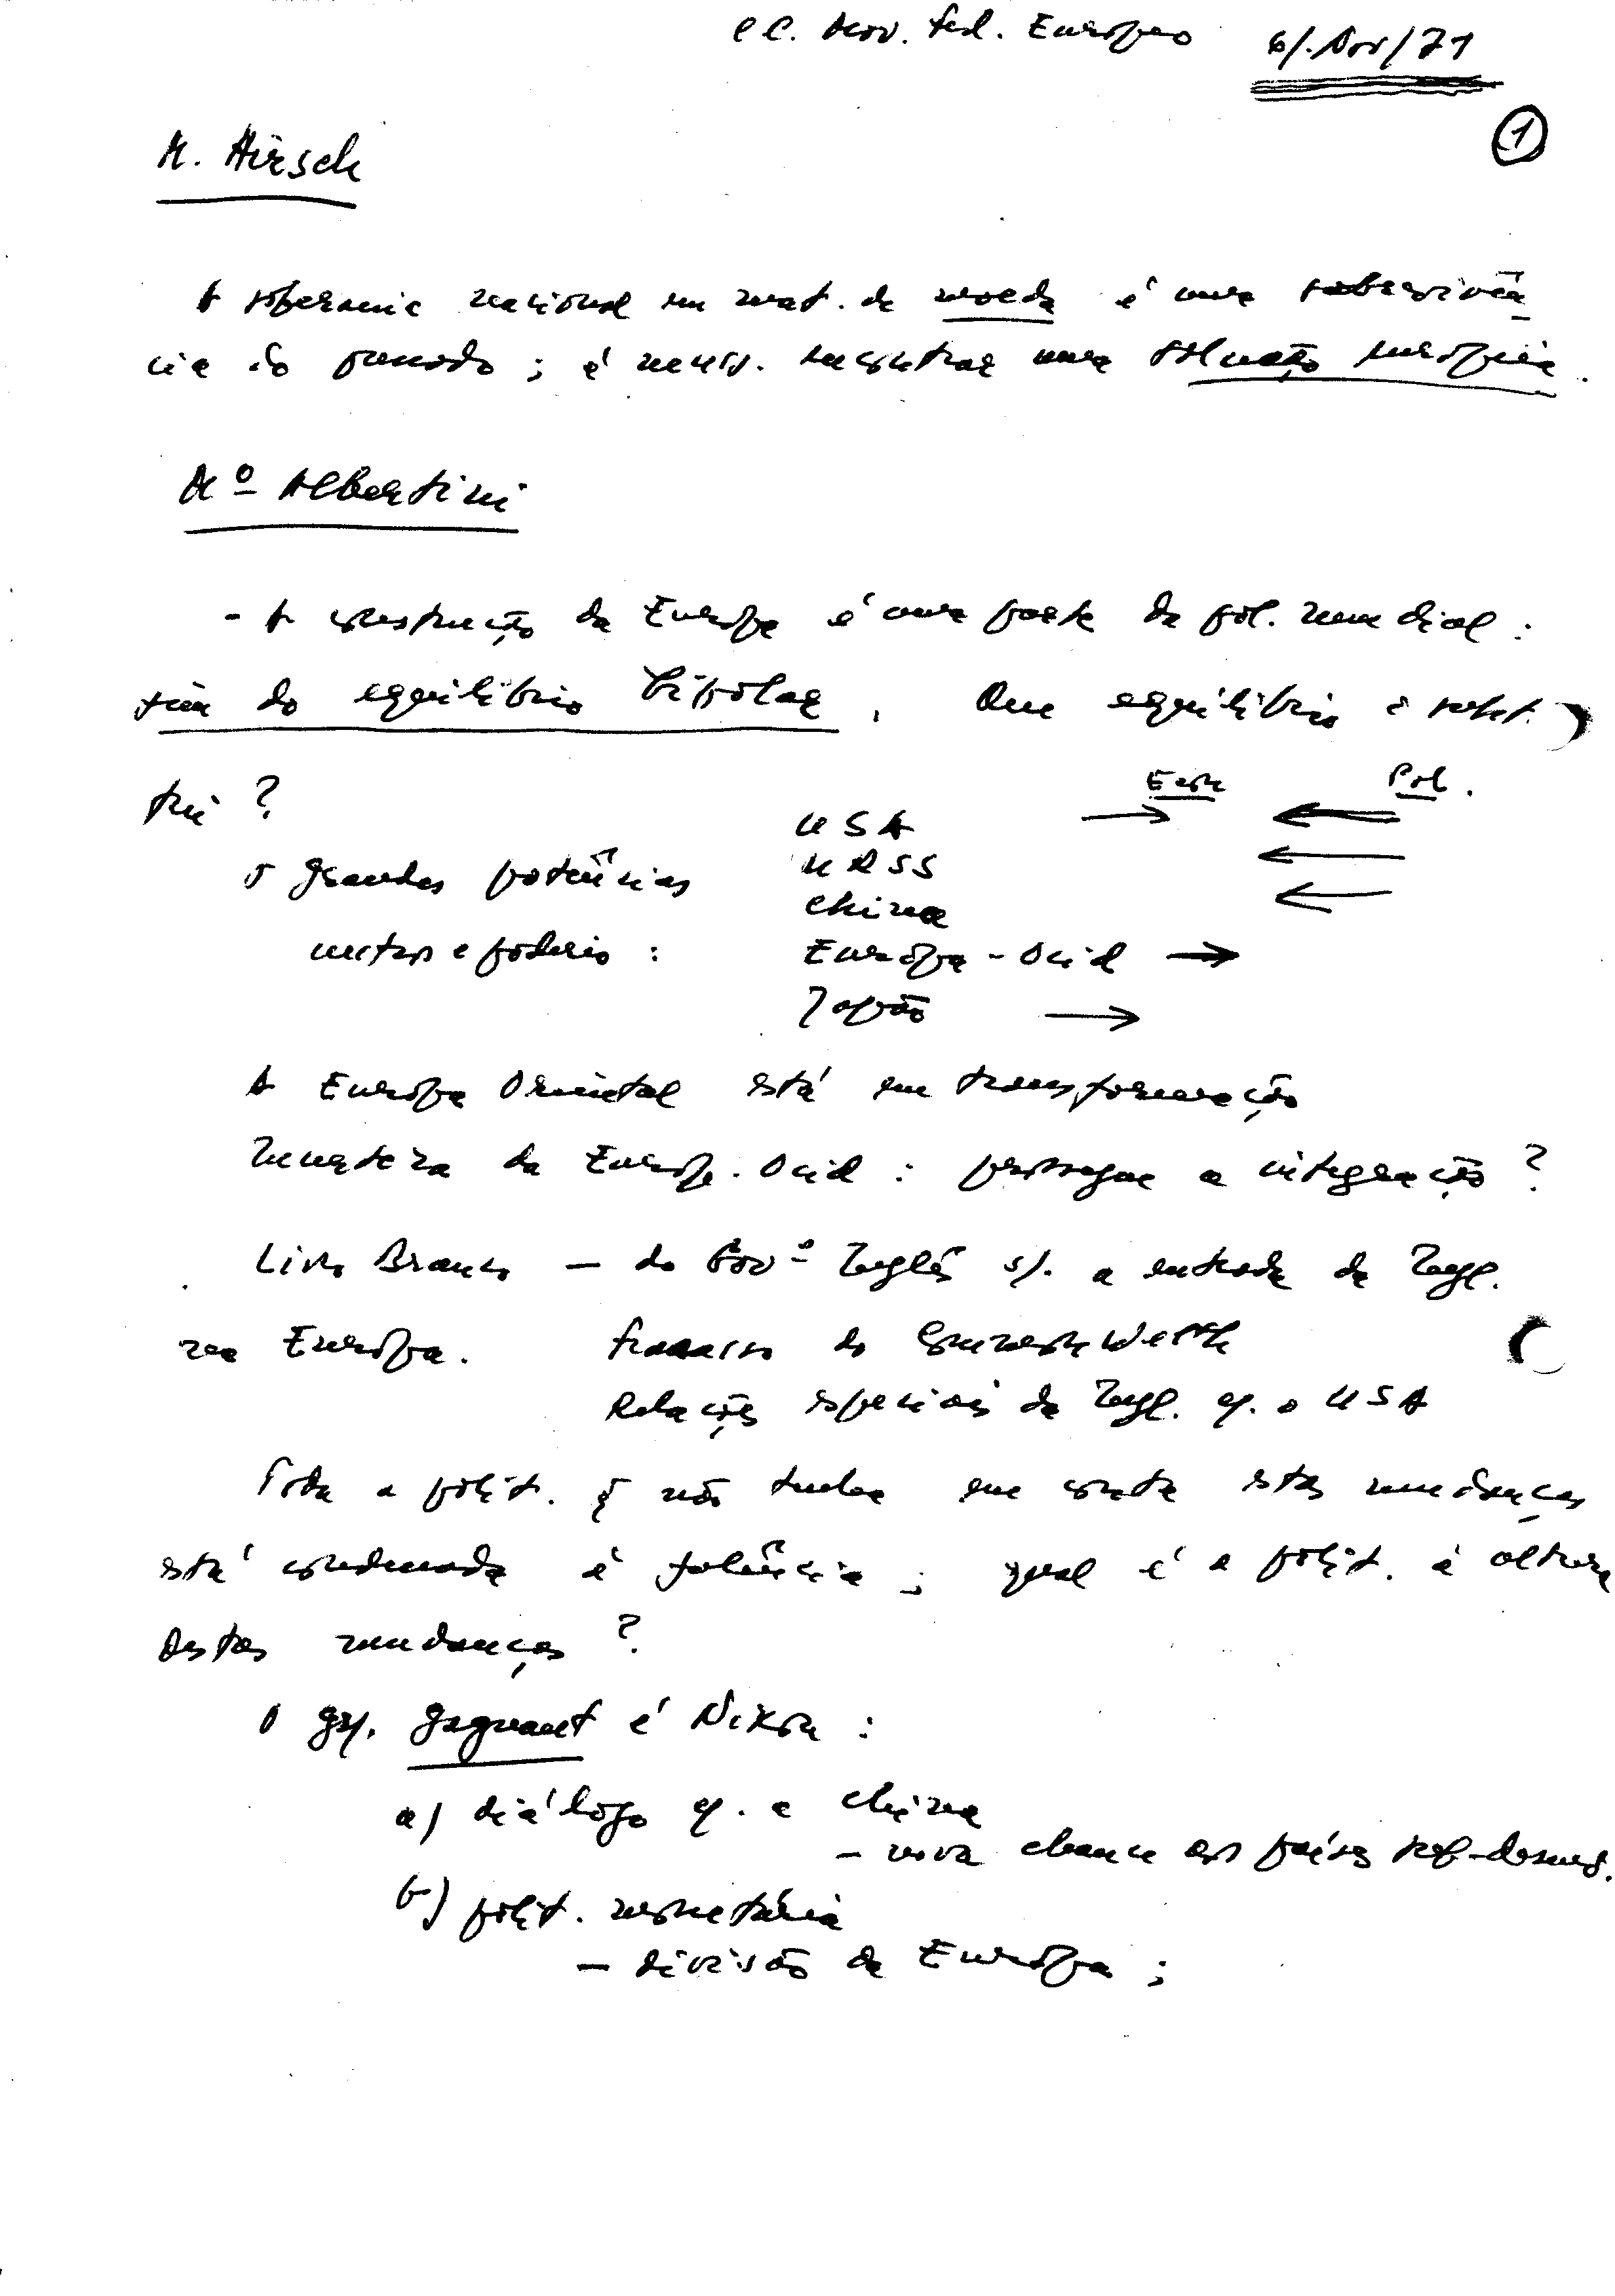 C C. Mov. Fed. Europeo 6/. Nov/71
1
M. Hirsch
A soberania nacional em mat. de moeda é uma sobrevivên
cia do passado ; é necess. encontrar uma solução europeia.
Mº Albertini
- A construção da Europa é uma parte da pol. mundial :
fim do equilíbrio bipolar. Que equilíbrio o subst.
tui ?
Econ Pol.
5 grandes potências USA → ←
URSS ←
China ←
centros e poderio : Europa - Ocid →
Japão →
A Europa Oriental está em transformação
Incerteza da Europ. Ocid : prossegue a integração ?
Livro Branco — do Govº Inglês s/. a entrada da Ingl.
na Europa. Fracasso do Commonwelth
Relações especiais da Ingl. c/. o USA
Toda a polít. q̃ não tenha em conta estas mudanças
está condenada à falência ; qual é a polít. à altura
destas mudanças ?
O gagnant é Nixon :
a) diálogo c/. a China
- nova chance aos países sub-desenv.
b) polít. monetária
— divisão da Europa ;